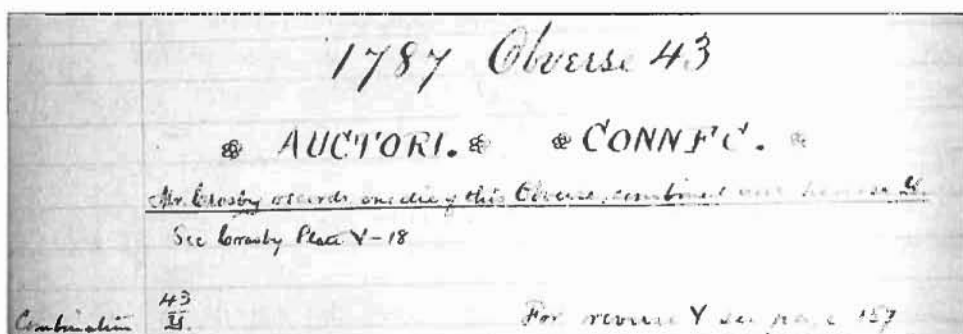 1787 Obverse 43
❀ AUCTORI. ❀ ❀ CONNEC. ❀
Mr. Crosby records one die of this Obverse, combined with reverse
See Crosby Plate V-18
43
Combination Y.
For reverse Y see page 157